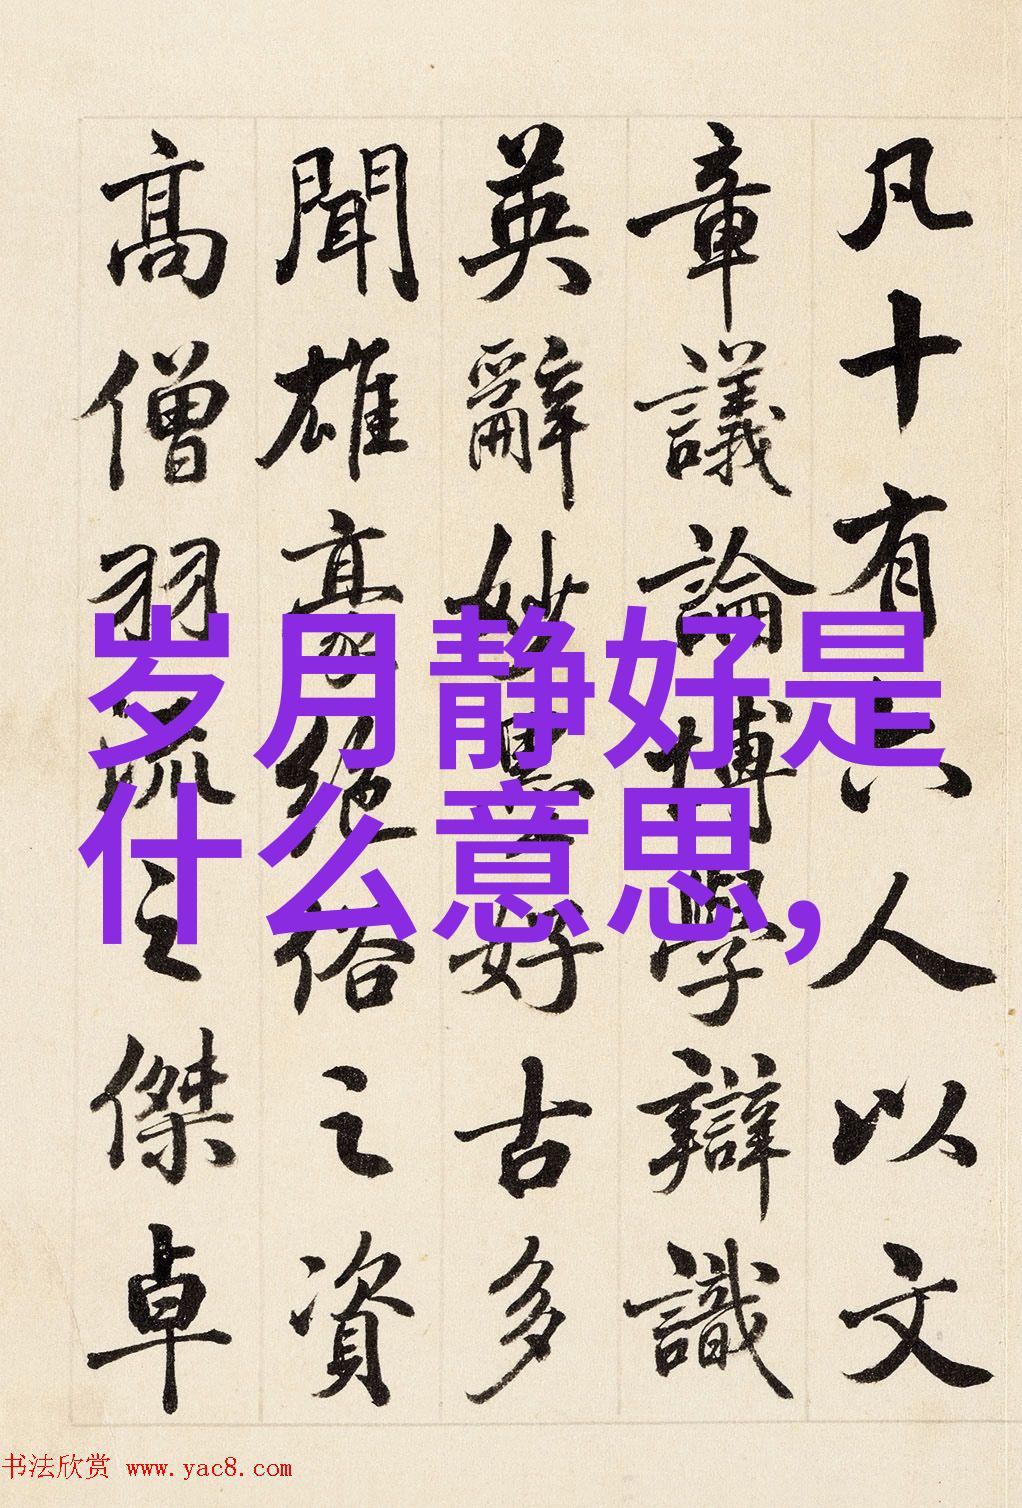 凡十有六人以文
章議論博學辯識
英辭妙墨好古多
聞雄豪絶俗之資
髙僧羽流之傑卓
岁月静好是
什么意思,
书法欣赏 www.yac8.com